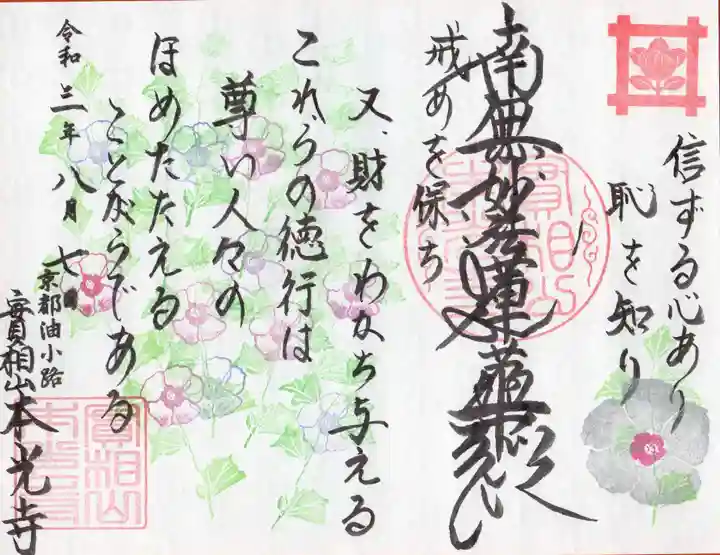 信ずる心あり
恥を知り
南無妙法蓮華経
戒めを保ち
又、財をわかち与える
これらの徳行は
尊い人々の
ほめたたえる
ことがらである
令和三年八月七日
京都油小路
實相山本光寺
實相山